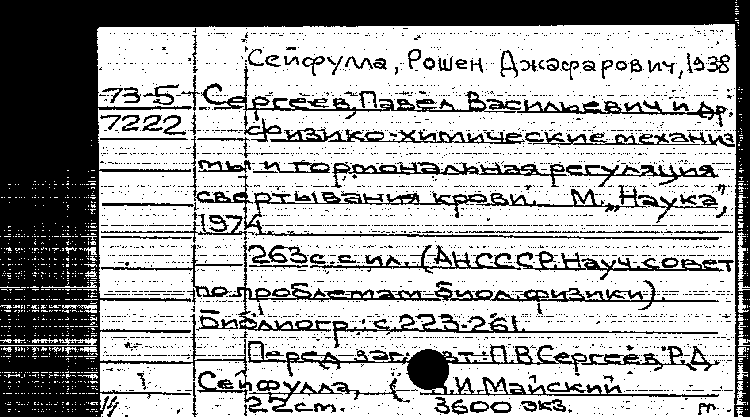 Сейфулла, Рошен Джафарович, 1938
73-5 Сергеев, Павел Васильевич и др.
7222 Физико-химические механиз
мы и гормональная регуляция
свертывания крови. М., "Наука",
1974.
263с. с ил. (АН СССР. Науч. совет
по проблемам биол. физики).
Библиогр.: с. 223-261.
Перед загл. авт.: П.В. Сергеев, Р.Д.
Сейфулла, А.И. Майский
22 cm. 3600 экз.